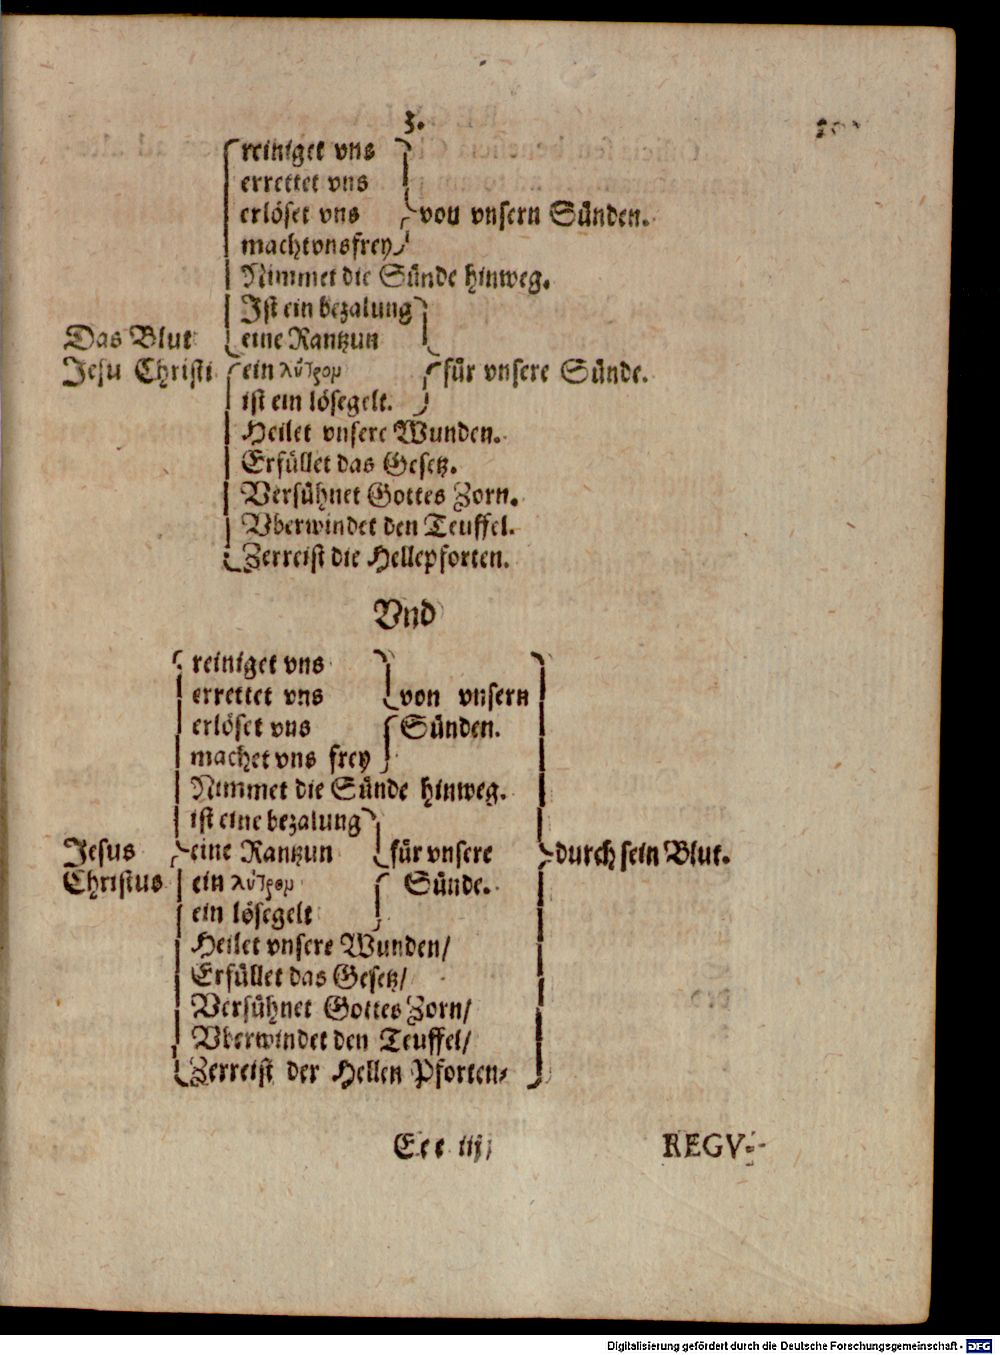 3.
reiniget vns
errettet vns
erlöset vns von vnsern Sünden.
machtvnsfrey
Nimmet die Sünde hinweg.
Ist ein bezalung
Das Blut eine Rantzun
Jesu Christi ein λύτρομ für vnsere Sünde.
ist ein lösegelt.
Heilet vnsere Wunden.
Erfüllet das Gesetz.
Versühnet Gottes Zorn.
Vberwindet den Teuffel.
Zerreist die Hellepforten.
Vnd
reiniget vns
errettet vns von vnsern
erlöset vns Sünden.
machet vns frey
Nimmet die Sünde hinweg.
ist eine bezalung
Jesus eine Rantzun für vnsere durch sein Blut.
Christus ein λύτρομ Sünde.
ein lösegelt
Heilet vnsere Wunden/
Erfüllet das Gesetz/
Versühnet Gottes Zorn/
Vberwindet den Teuffel/
Zerreist der Hellen Pforten/
iij
REGV-
Digitalisierung gefördert durch die Deutsche Forschungsgemeinschaft - DFG